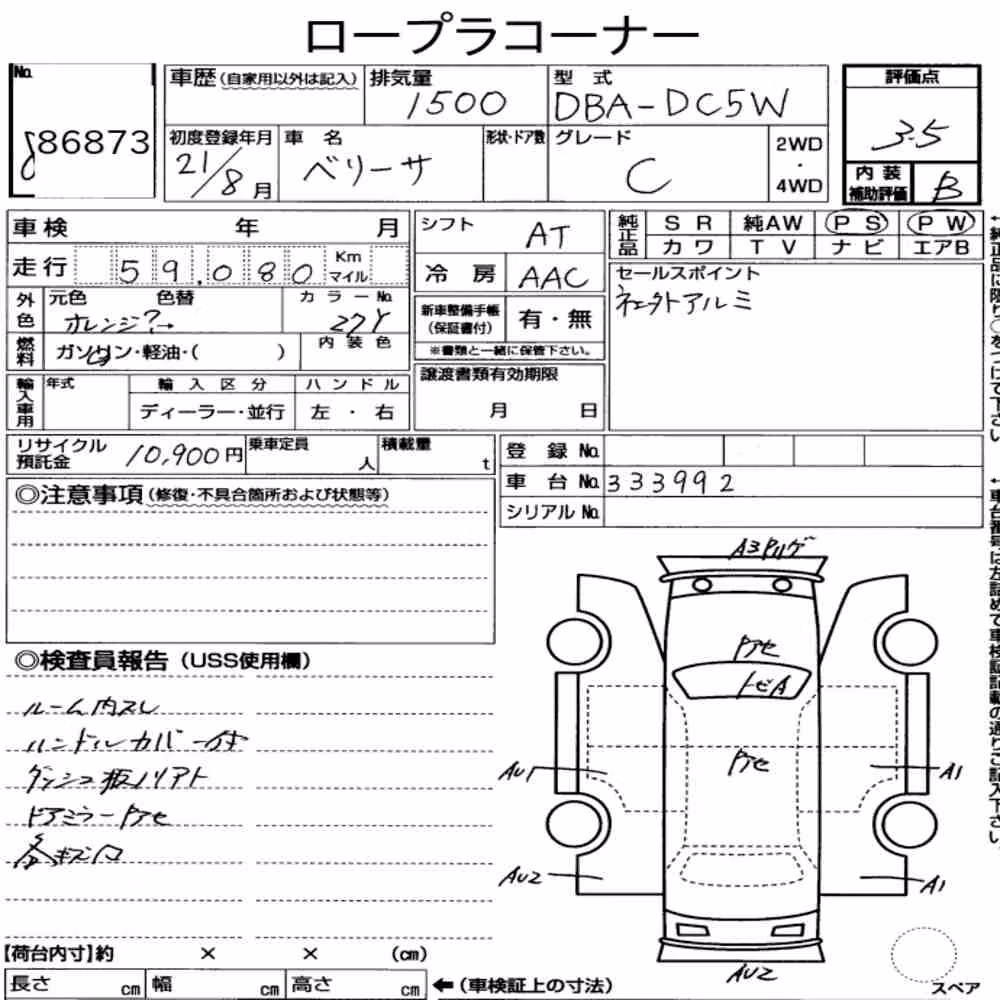 ロープラコーナー
No. 86873
車歴(自家用以外は記入)
排気量 1500
型式 DBA-DC5W
評価点 3.5
初度登録年月 21/8月
車名 ベリーサ
形状・ドア数
グレード C
2WD・4WD
内装補助評価 B
車検 年 月
シフト AT
純正品 SR 純AW PS PW
カワ TV ナビ エアB
走行 59,080 Km マイル
冷房 AAC
セールスポイント
社外アルミ
外色 元色 色替 カラーNo.
オレンジ?→ 27Y
新車整備手帳(保証書付) 有・無
※書類と一緒に保管下さい。
燃料 ガソリン・軽油・( )
内装色
譲渡書類有効期限
月 日
輸入車用 年式 輸入区分 ハンドル
ディーラー・並行 左・右
リサイクル預託金 10,900円
乗車定員 人
積載量 t
登録No.
車台No. 333992
シリアルNo.
◎注意事項(修復・不具合箇所および状態等)
A3 Pハゲ
◎検査員報告(USS使用欄)
ルーム内スレ
ハンドルカバー付
ダッシュ板ノリアト
ドアミラーPアセ
各キズ凹
Pアセ
トビA
Pアセ
AU1
A1
AU2
A1
AU2
【荷台内寸】約 × × (cm)
長さ cm 幅 cm 高さ cm ←(車検証上の寸法)
スペア
←純正品に限り○をつけて下さい。
←車台番号は左詰めで車検証記載の通りご記入下さい。